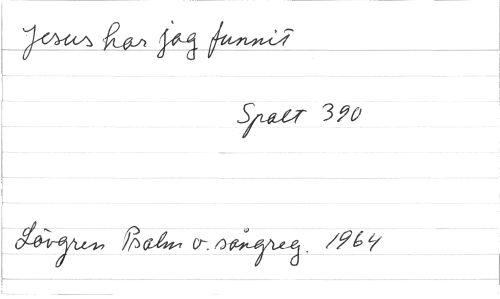 Jesus har jag funnit
Spalt 390
Lövgren Psalm o. sångreg. 1964